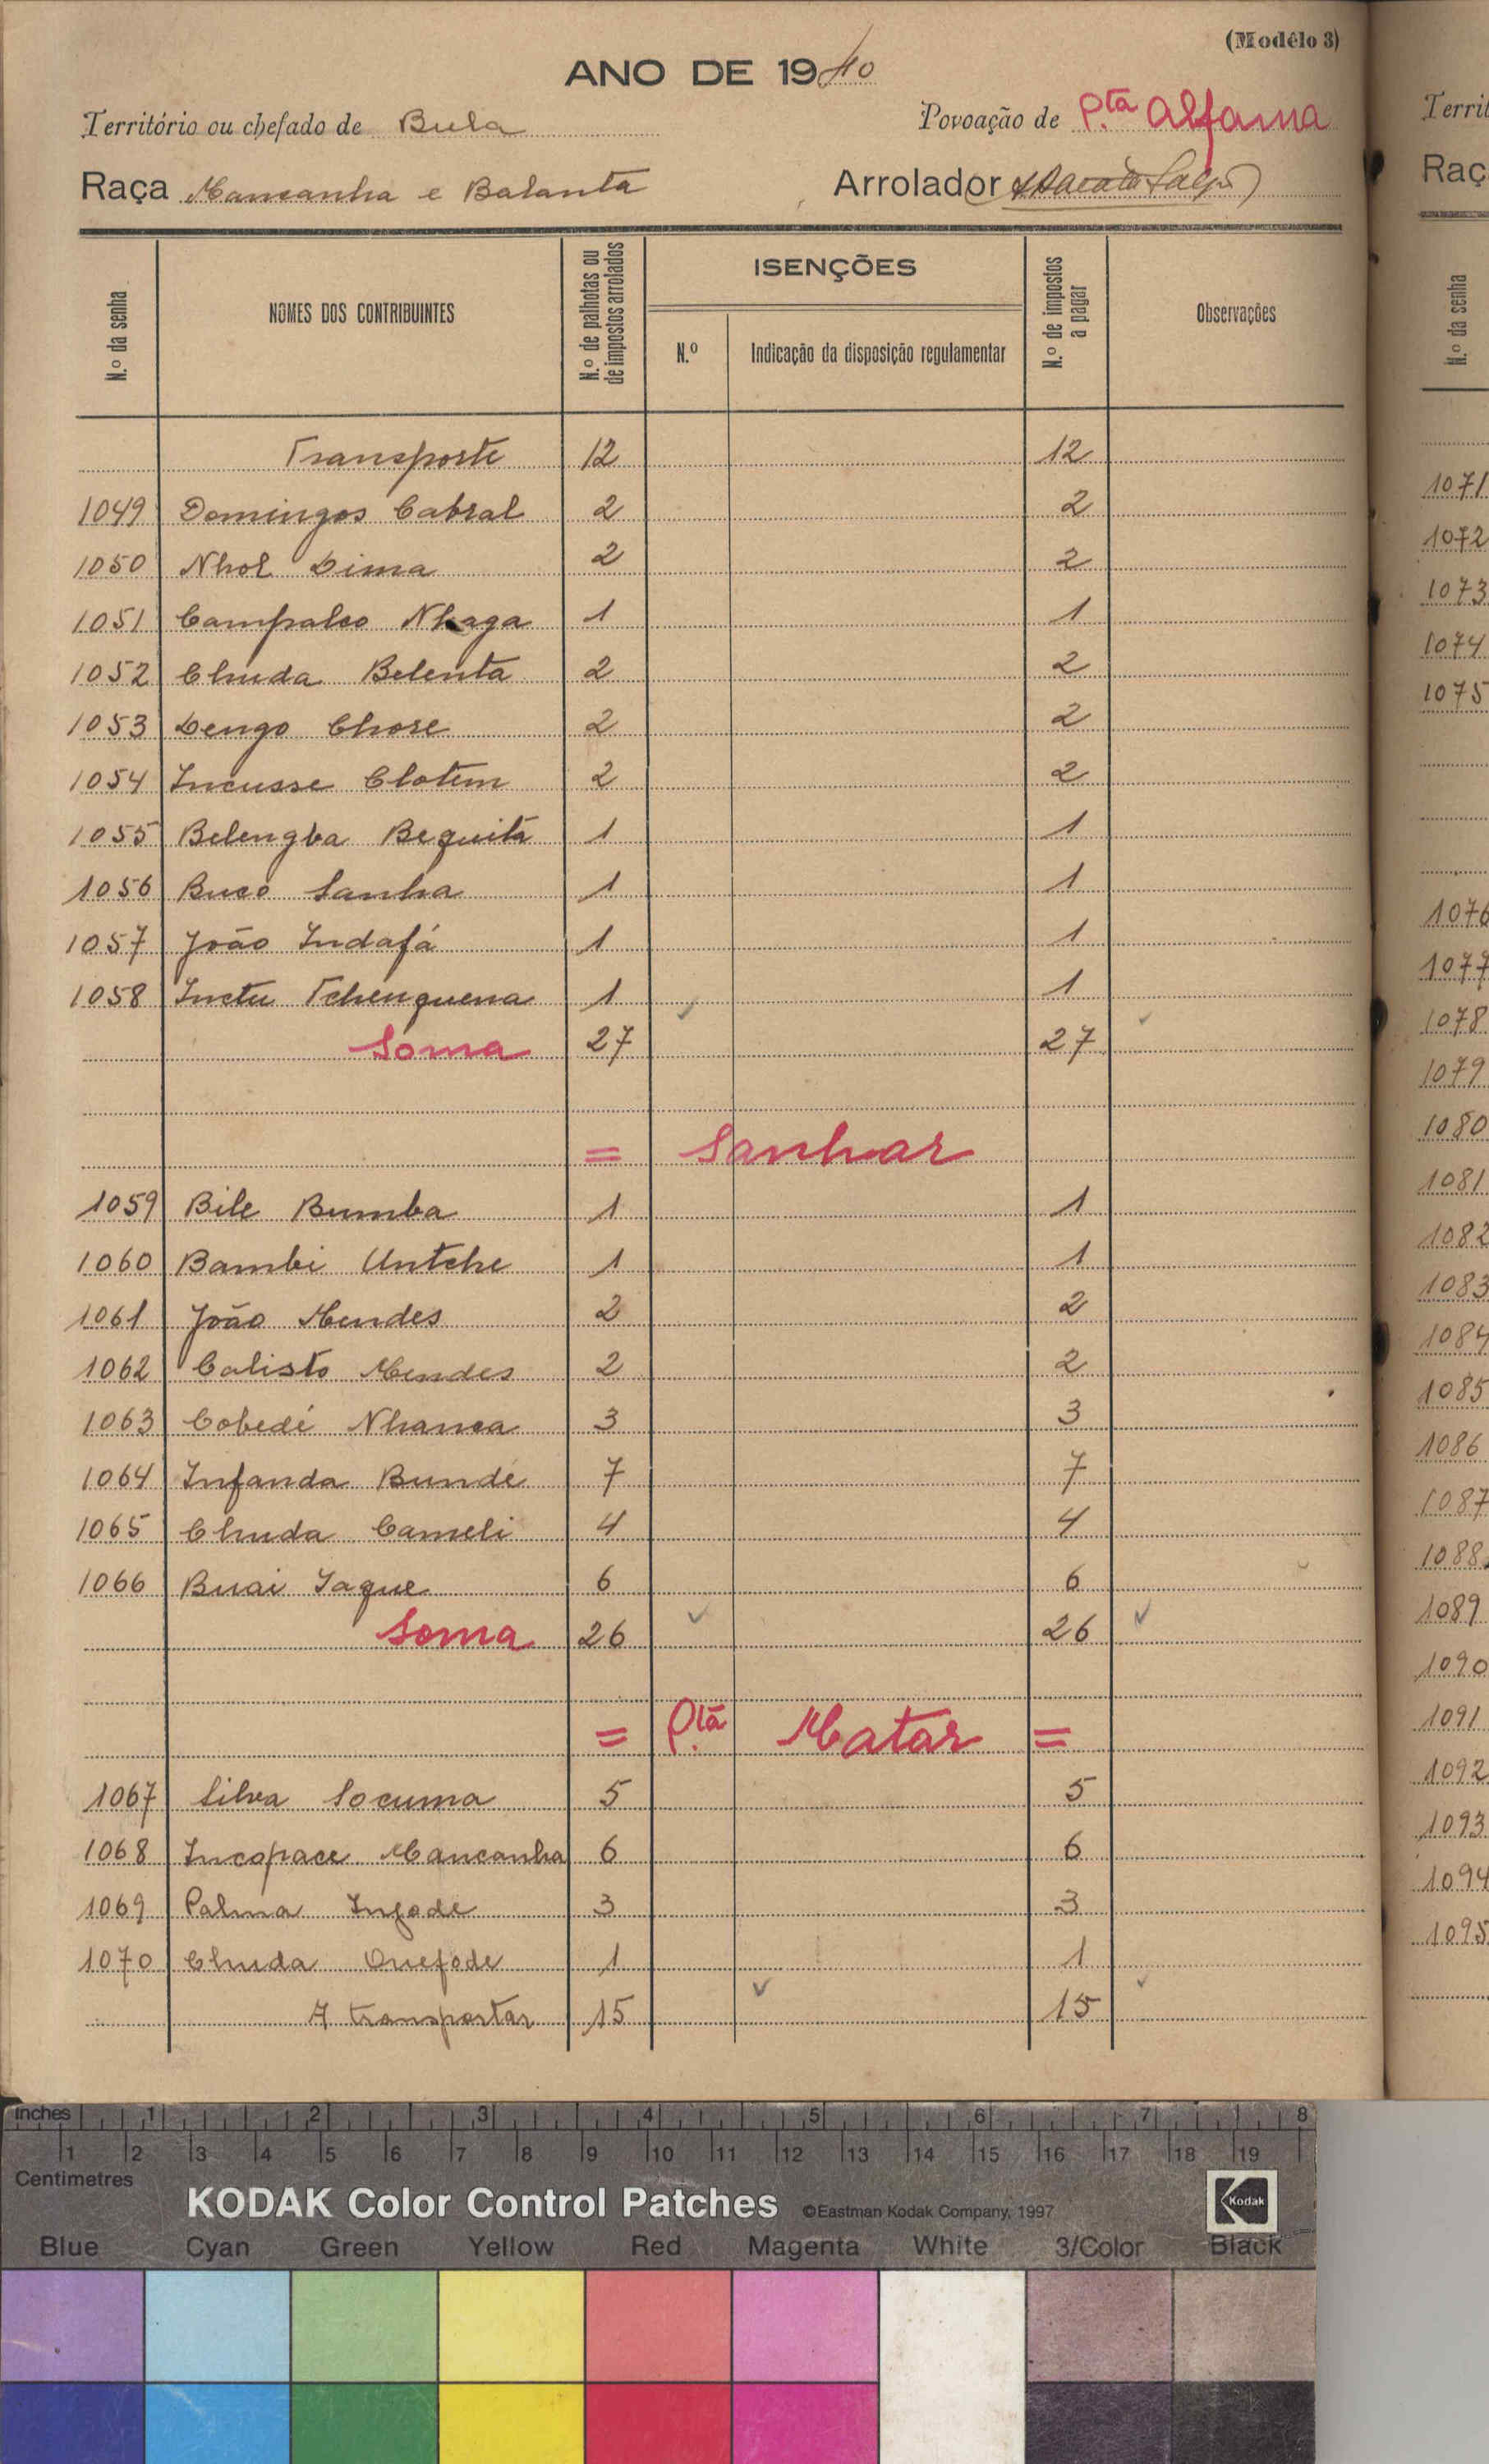 (Modêlo 3)
ANO DE 1940
Território ou chefado de Bula Povoação de P.ta Alfama
Raça Mancanha e Balanta Arrolador
N.º da senha NOMES DOS CONTRIBUINTES N.º de palhotas ou de impostos arrolados ISENÇÕES N.º Indicação da disposição regulamentar N.º de impostos a pagar Observações
Transporte 12 12
1049 Domingos Cabral 2 2
1050 Nhol Dima 2 2
1051 Campalco Nhaga 1 1
1052 Chuda Belenta 2 2
1053 Dengo Chore 2 2
1054 Incusse Clotem 2 2
1055 Belengba Bequita 1 1
1056 Bucó Sanha 1 1
1057 João Indafá 1 1
1058 Inctu Tchenquena 1 1
Soma 27 27
= Sanhar
1059 Bile Bumba 1 1
1060 Bambi Untche 1 1
1061 João Mendes 2 2
1062 Calisto Mendes 2 2
1063 Cobedé Nhanca 3 3
1064 Infanda Bundé 7 7
1065 Chuda Cameli 4 4
1066 Buai Iaque 6 6
Soma 26 26
= P.ta Matar =
1067 Silva Socuma 5 5
1068 Incopace Mancanha 6 6
1069 Palma Infode 3 3
1070 Chuda Quefode 1 1
A transportar 15 15
Territ
Raç
N.º da senha
1071
1072
1073
1074
1075
1076
1077
1078
1079
1080
1081
1082
1083
1084
1085
1086
1087
1088
1089
1090
1091
1092
1093
1094
1095
inches 1 2 3 4 5 6 7 8
1 2 3 4 5 6 7 8 9 10 11 12 13 14 15 16 17 18 19
Centimetres
KODAK Color Control Patches ©Eastman Kodak Company, 1997 Kodak
Blue Cyan Green Yellow Red Magenta White 3/Color Black